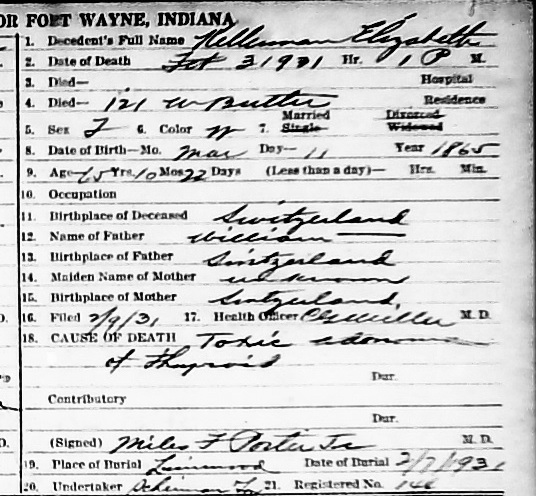 OR FORT WAYNE, INDIANA
1. Decedent's Full Name Kellerman Elizabeth
2. Date of Death Feb 3 1931 Hr. 1 P M.
3. Died— Hospital
4. Died— 121 W Butler Residence
Married Divorced
5. Sex F 6. Color W 7. Single Widowed
8. Date of Birth—Mo. Mar Day— 11 Year 1865
9. Age 65 Yrs. 10 Mos 22 Days (Less than a day)— Hrs. Min.
10. Occupation
11. Birthplace of Deceased Switzerland
12. Name of Father William
13. Birthplace of Father Switzerland
14. Maiden Name of Mother unknown
15. Birthplace of Mother Switzerland
16. Filed 2/9/31 17. Health Officer Miller M. D.
18. CAUSE OF DEATH Toxic adenoma
of Thyroid
Dur.
Contributory
Dur.
(Signed) Miles F Porter Jr M. D.
19. Place of Burial Lindenwood Date of Burial 2/7/1931
20. Undertaker 21. Registered No. 146